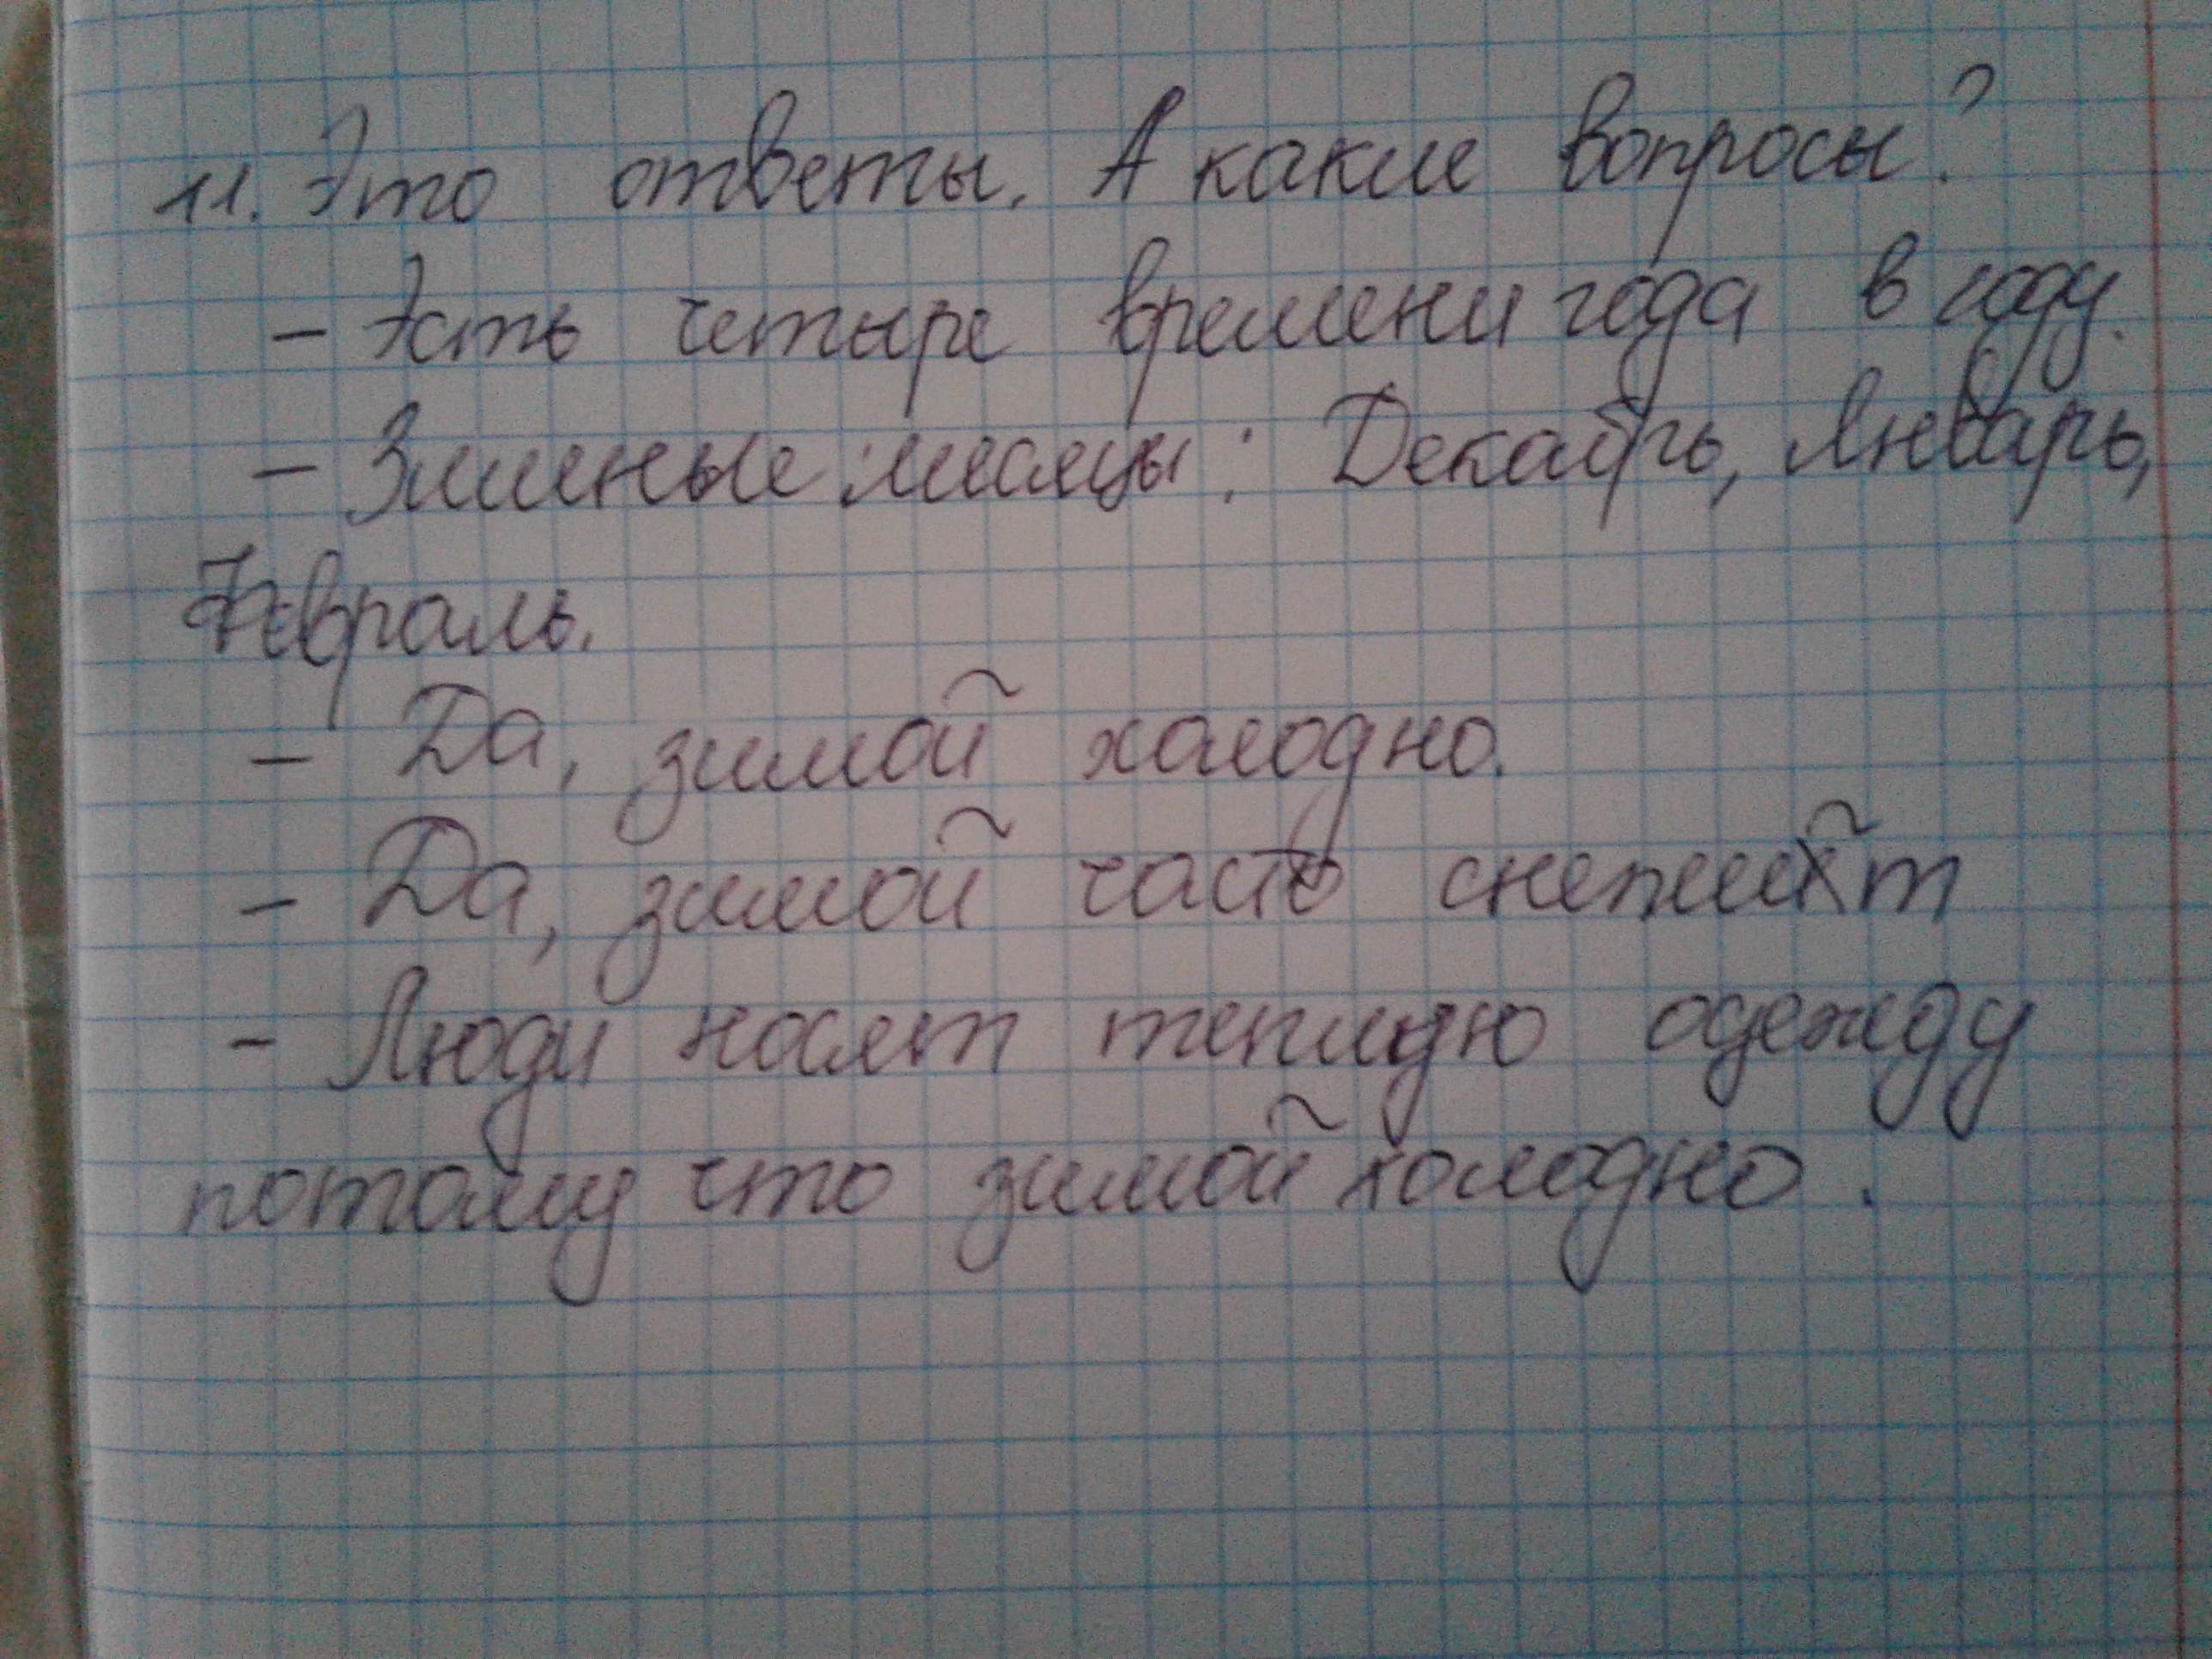 11. Это ответы. А какие вопросы?
- Эсть четыре времени года в году.
- Зимные месяцы: Декабрь, Январь,
Февраль.
- Да, зимой холодно.
- Да, зимой часто
- Люди носят теплую одежду
потому что зимой холодно.